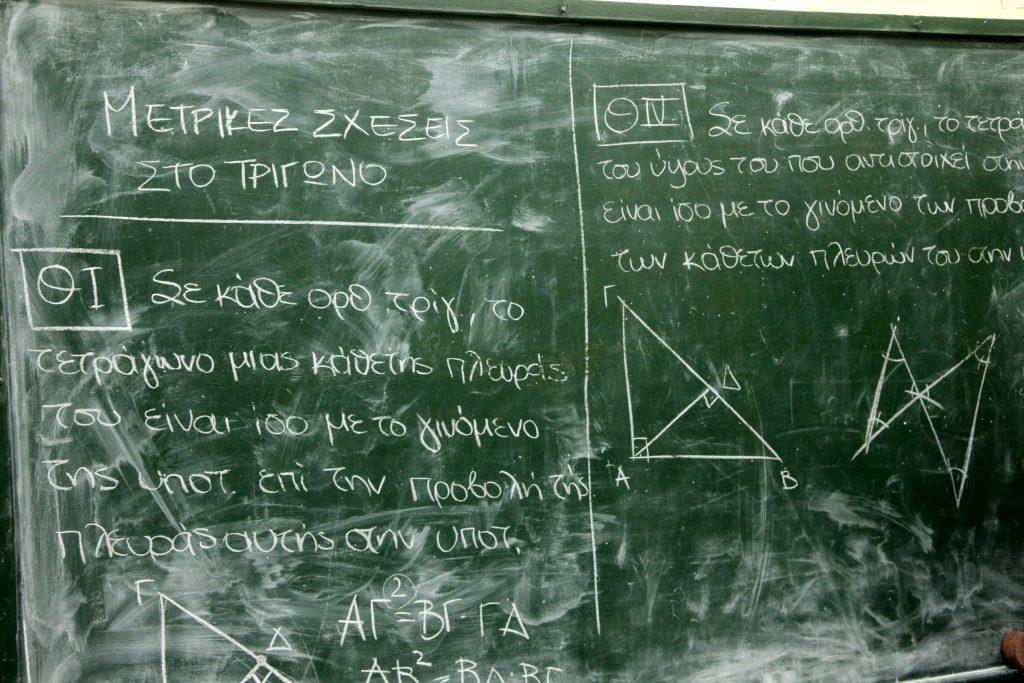 ΜΕΤΡΙΚΕΣ ΣΧΕΣΕΙΣ
ΣΤΟ ΤΡΙΓΩΝΟ
Θ-Ι Σε κάθε ορθ. τρίγ, το
τετράγωνο μιας κάθετης πλευράς
του είναι ίσο με το γινόμενο
της υποτ. επί την προβολή της
πλευράς αυτής στην υποτ.
Γ
Δ
ΑΓ²=ΒΓ·ΓΔ
ΑΒ²=ΒΔ·ΒΓ
Θ IV Σε κάθε ορθ. τρίγ, το τετρά
του ύψους του που αντιστοιχεί στην
είναι ίσο με το γινόμενο των προβο
των κάθετων πλευρών του στην
Γ
Δ
Α
Β